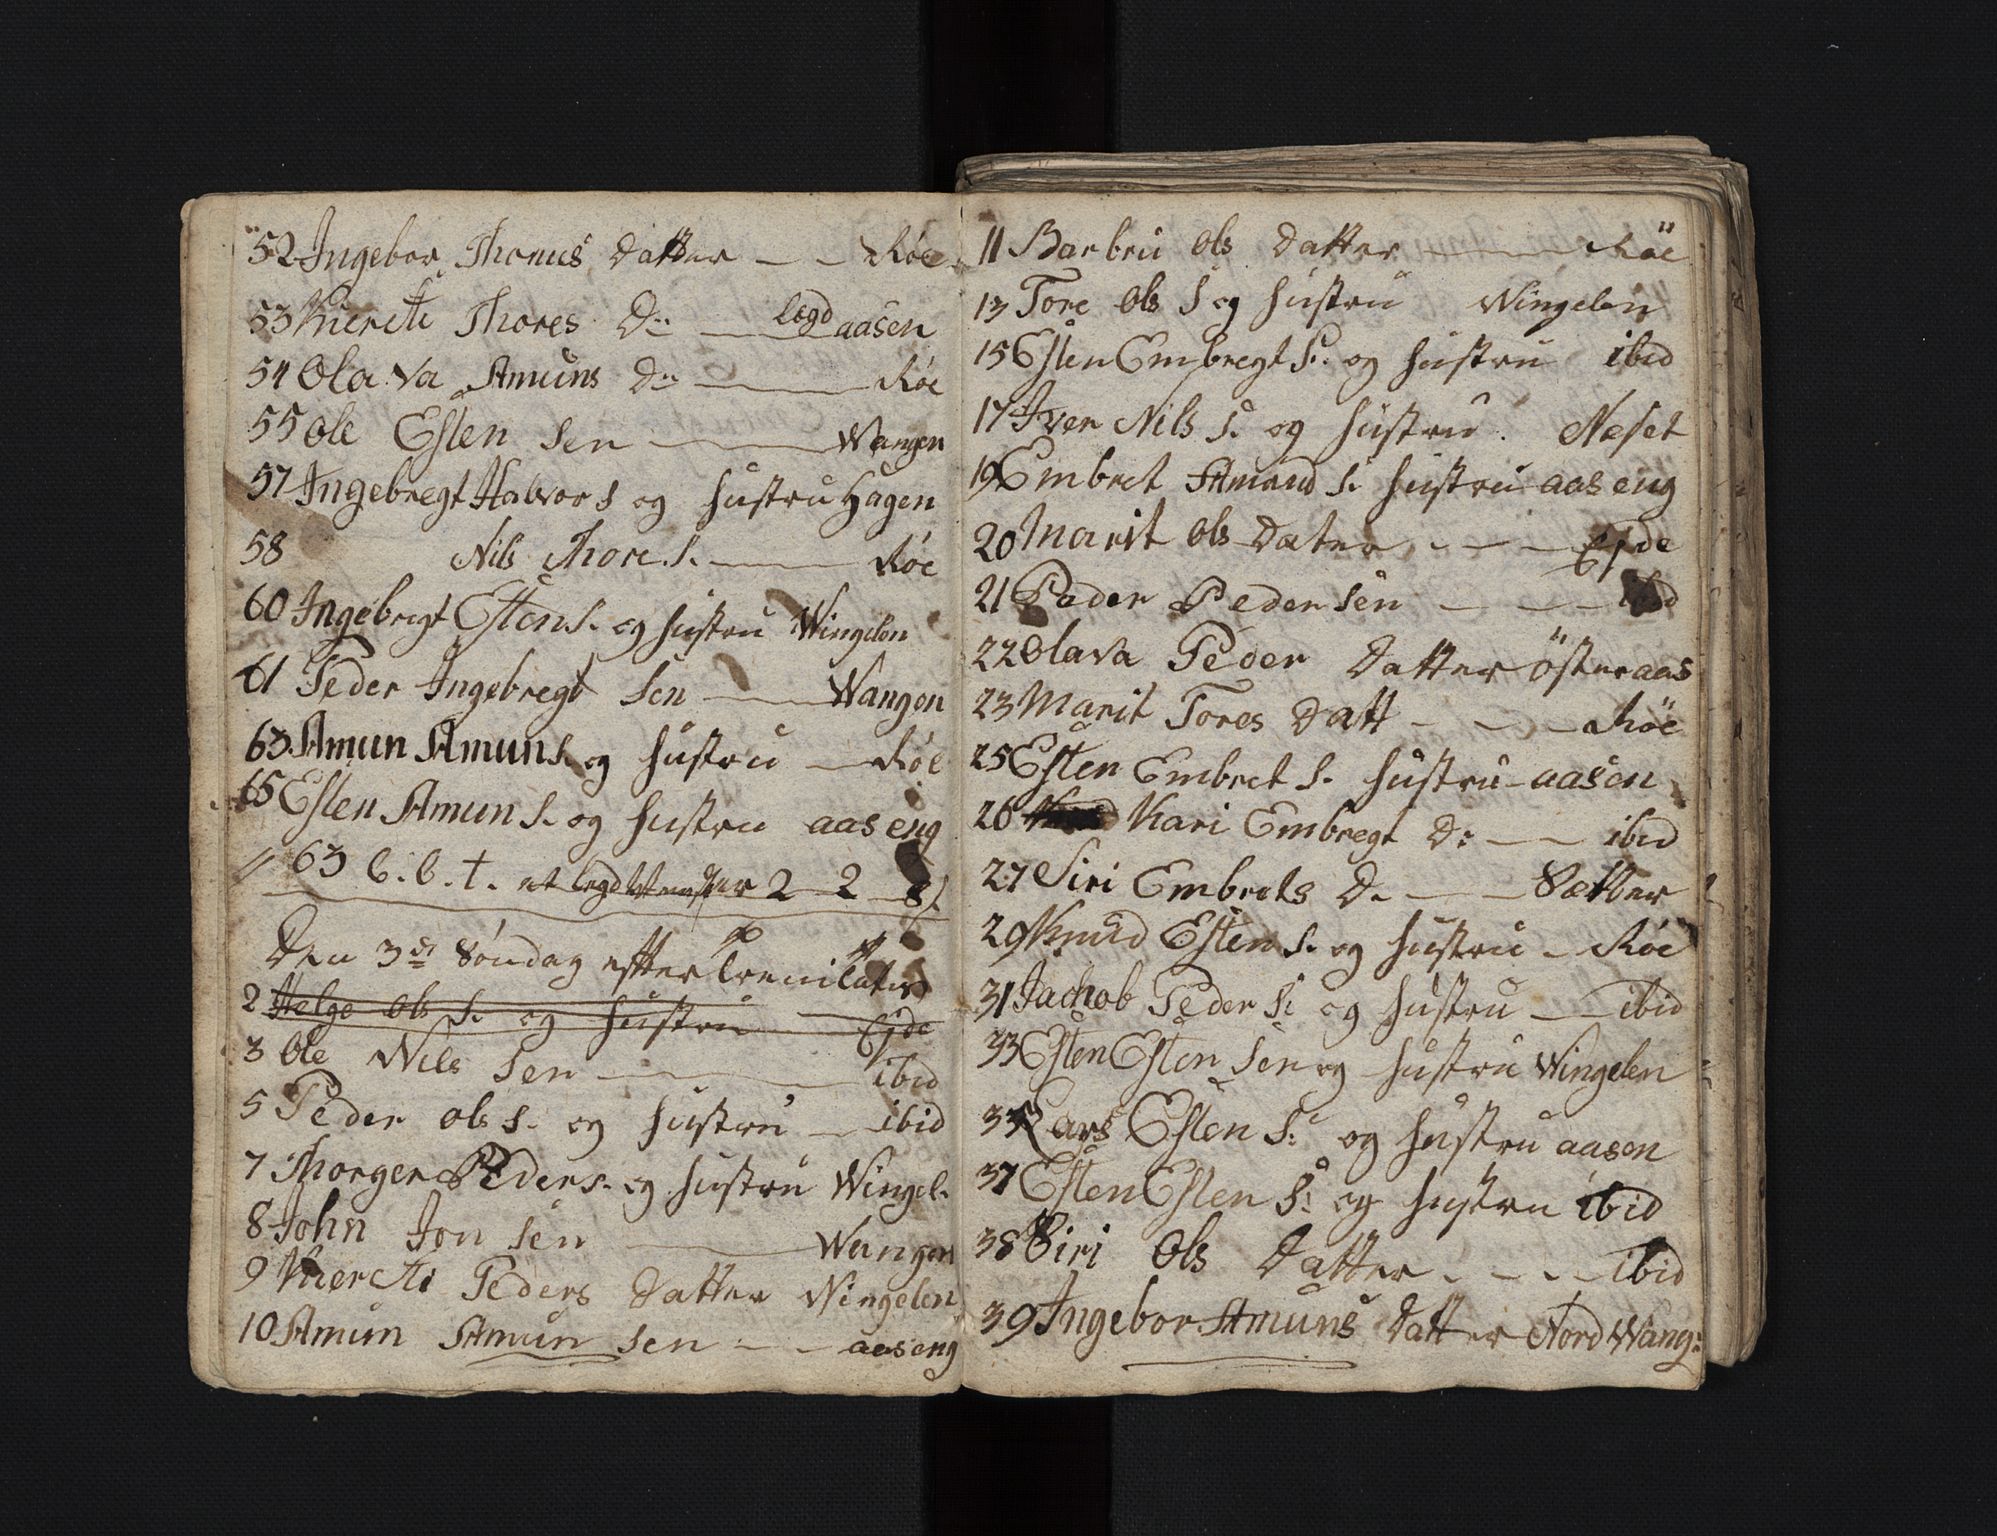 52 Ingebor Thomes Datter — — Røe
53 Kiersti Thores D: — lægd aasen
54 Ola va Amuns D: — Røe
55 Ole Esten sen — Wangen
57 Ingebregt Halvor s og hustru Hagen
58 Nils Thore s. — Røe
60 Ingebrigt Esten s. og hustru Wingelen
61 Peder Ingebregt sen — Wangen
63 Amun Amun s. og hustru — Røe
65 Esten Amun s. og hustru aaseng
// 63 C. C. t. et legd 2 — 2 — 8/
Den 3di Søndag efter trenitatis
2 Helge Ols s. og hustru — Ejde
3 Ole Nils sen — ibid
5 Peder Ols s. og hustru — ibid
7 Thorger Peder s. og hustru Wingel.
8 John Jon sen — Wangen
9 Kiersti Peders Datter Wingelen
10 Amun Amun sen — — aaseng
11 Barbru Ols Datter — Røe
13 Tore Ols s og hustru Wingelen
15 Esten Embregt s. og hustru ibid
17 Iver Nils s. og hustru. Neset
19 Embret Amund s. hustru aaseng
20 Marit Ols Dater - - - Ejde
21 Peder Peder sen — — — ibid
22 Olava Peder Datter österaas
23 Marit Tores Datt - - - Röe
25 Esten Embret s. hustru - aasen
26 Kari Embregt D: — — ibid
27 Siri Embrets D. — — Sætter
29 Knud Esten s. og hustru - Röe
31 Jachob Peder s: og hustru — ibid
33 Esten Esten sen og hustru Wingelen
35 Lars Esten s: og hustru aasen
37 Esten Esten s: og hustru ibid
38 Siri Ols Datter - - - - ibid
39 Ingebor Amuns Datter Nord Wang: